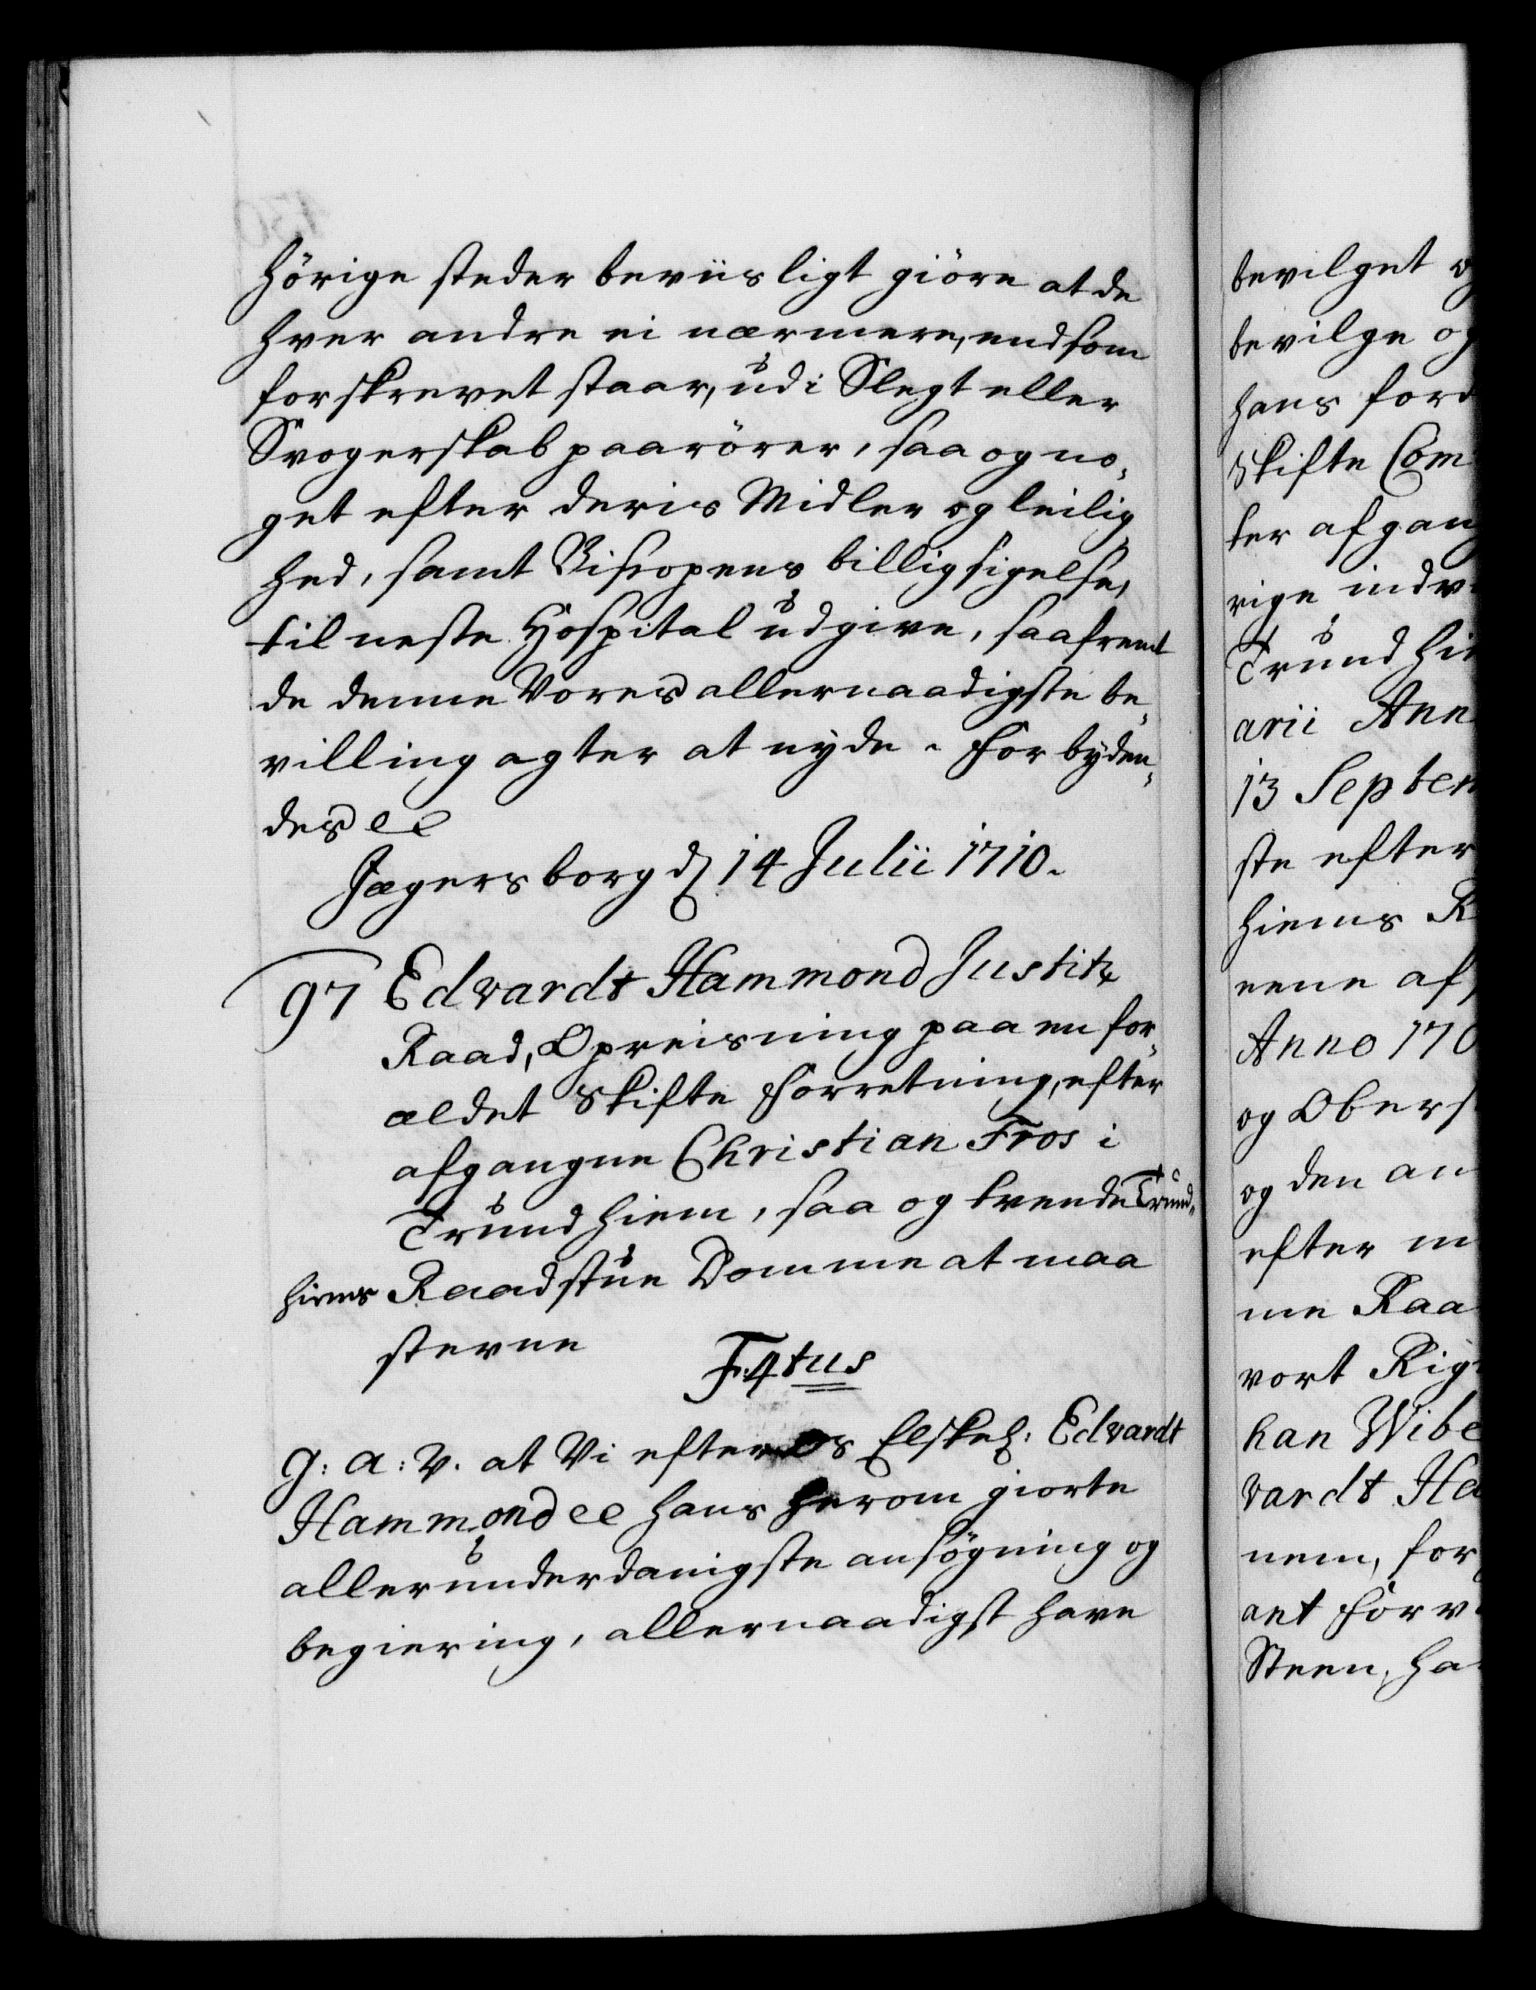 hörige steder beviisligt giöre at de
hver andre ei nærmere, end som
forskrevet staar, udi Slegt eller
Svogerskab paarörer, saa og no,,
get efter deris Midler og leilig,,
hed, samt Biscopens billigsigelse,
til neste Hospital udgive, saafremt
de denne Vores allernaadigste be,,
villing agter at nyde. Forbyden,,
des etc
Jægersborg d 14 Julii 1710.
97 Edvardt Hammond Justitz
Raad, Opreisning paa en for,,
ældet Skifte Forretning, efter
afgangne Christian Fros i
Trundhiem, saa og tvende Trund,,
hiems Raadstue Domme at maa
stevne
F. 4tus
G: A: V. at Vi efter Os Elskel: Edvardt
Hammond etc hans herom giorte
allerunderdanigste ansögning og
begiering, allernaadigst have
bevilget og
bevilge og
hans ford
Skifte Com
ter afgang
rige indv
Trundhie
arii Ann
13 Septem
ste efter
hiems R
nene af
Anno 170
og Oberst
og den an
efter m
me Raa
vort Rig
han Wibe
vardt Ha
nem, for
ant Forv
Steen, ha